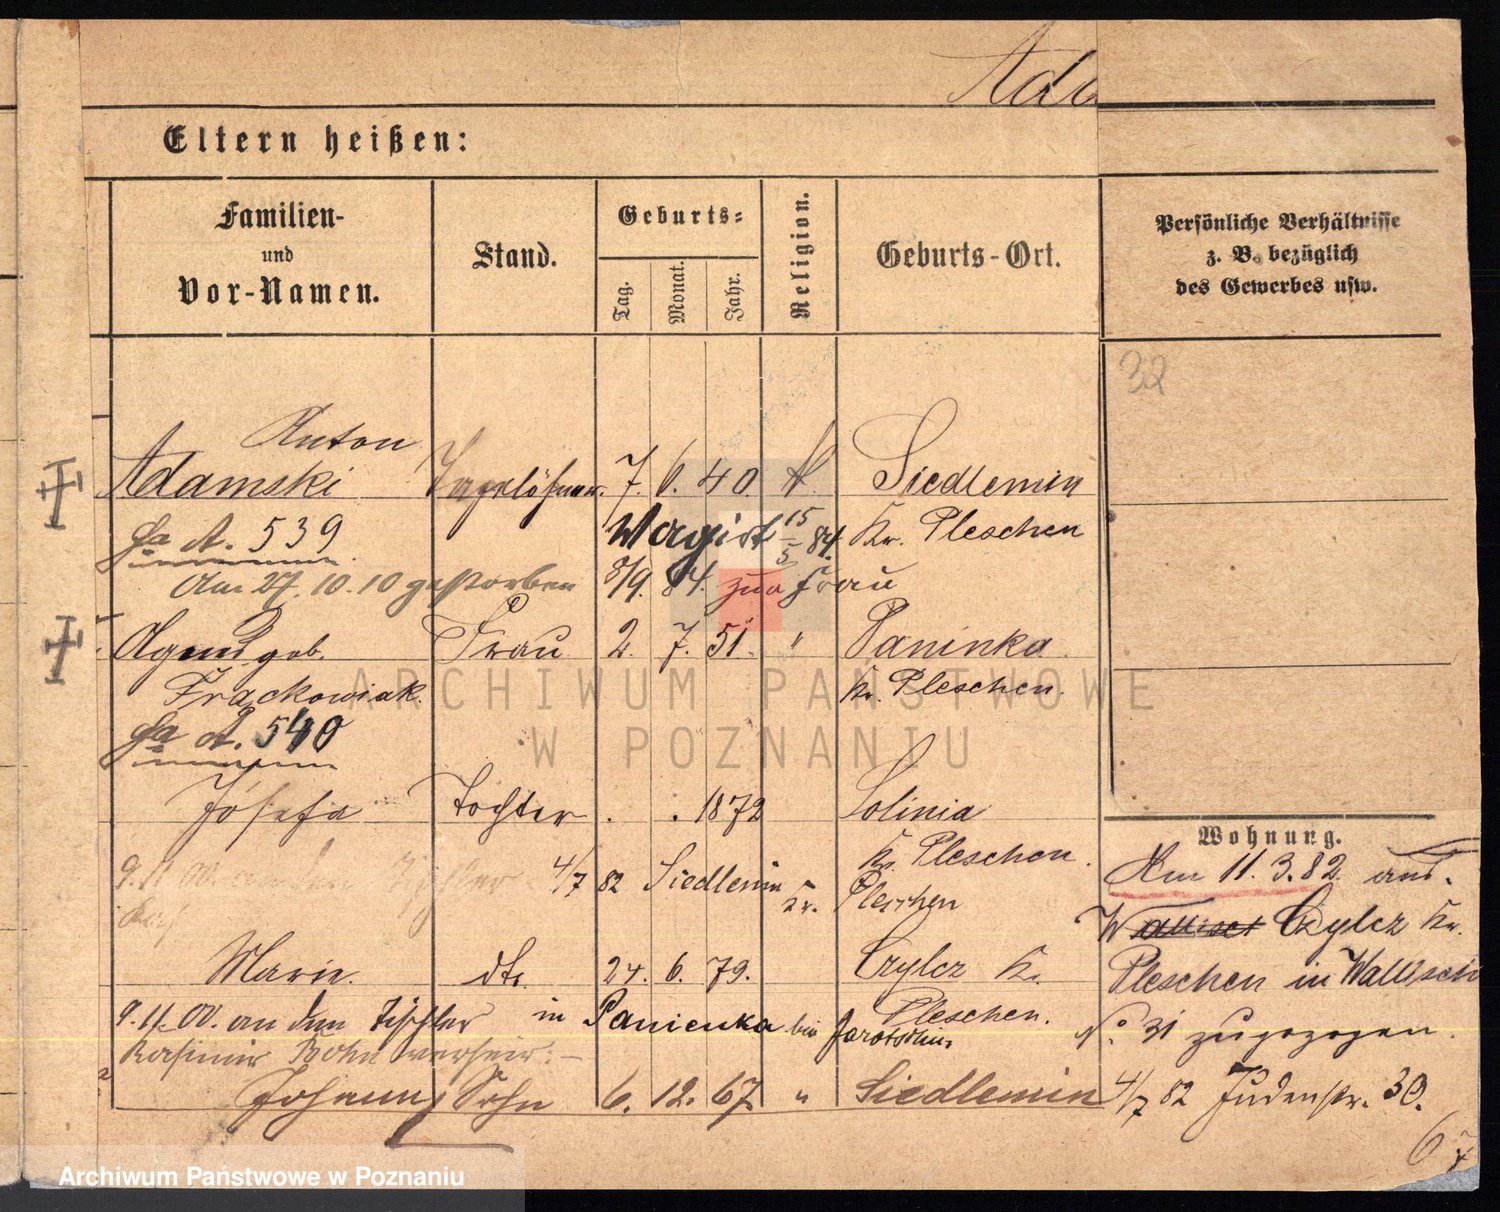 Ada
Eltern heißen:
Familien-
und
Vor-Namen.
Stand.
Geburts-
Tag.
Monat.
Jahr.
Religion.
Geburts-Ort.
Persönliche Verhältnisse
z. B. bezüglich
des Gewerbes usw.
32
Anton
Adamski Tagelöhner. 7. 6. 40. k. Siedlemin
A. 539 15/5 84. Kr. Pleschen
Am 27.10.10 gestorben 8/9. 84. zur Frau
Agnes geb. Frau 2. 7. 51. " Paninka
Frąckowiak. Kr. Pleschen.
A. 540
Josefa Tochter . . 1872 Solinia
Kr. Pleschen.
9.11.00. 4/7 82 Siedlemin Kr. Pleschen
Marie. dto. 24. 6. 79. Czylcz Kr.
Pleschen.
9.11.00. an den Tischler in Panienka bei Jarotschin.
Kasimir verheir: —
Johann, Sohn 6. 12. 67. " Siedlemin
Wohnung.
Am 11.3.82. aus.
Czylcz Kr.
Pleschen in Wallisch
No. 31 zugezogen.
4/7 82 Judenstr. 30.
ARCHIWUM PAŃSTWOWE
W POZNANIU
Archiwum Państwowe w Poznaniu